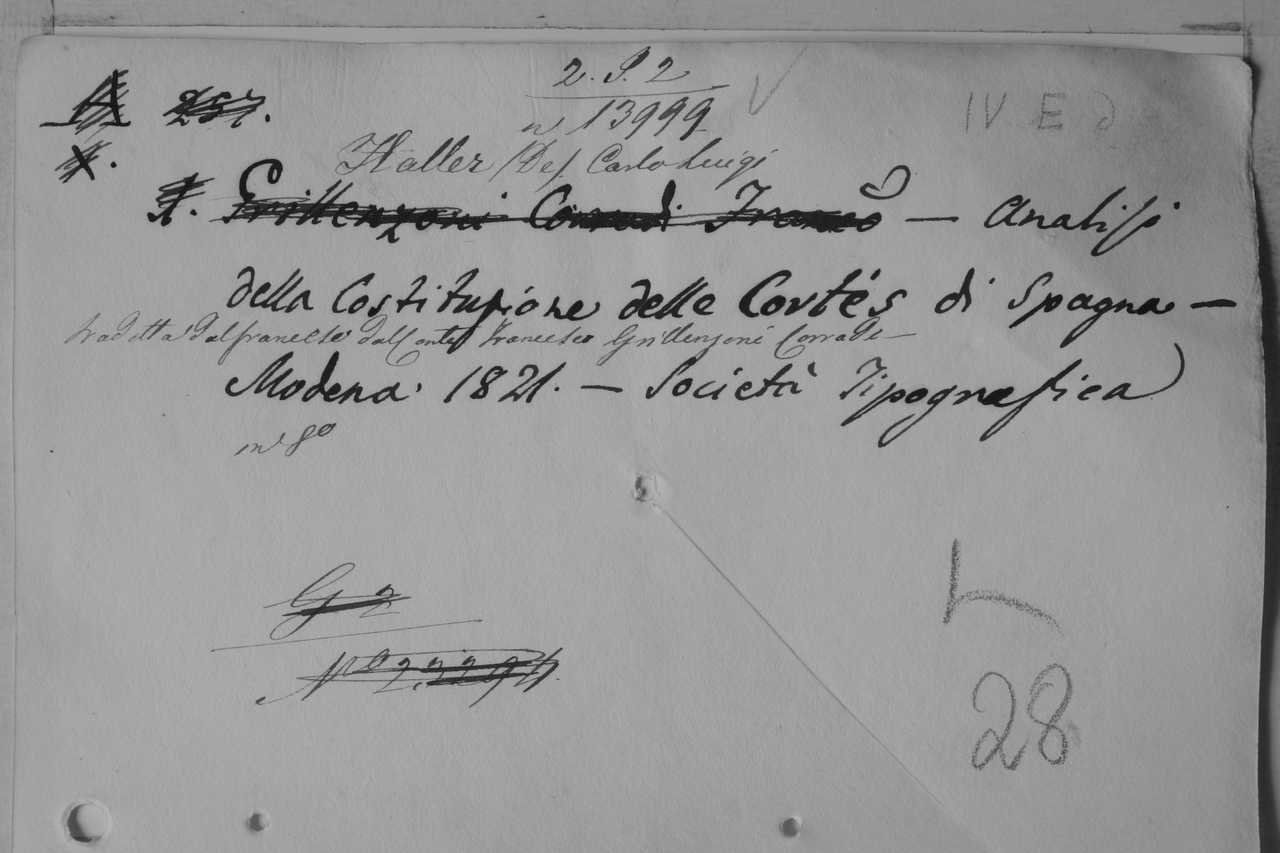 2. P. 2
257.
n° 13999
IV E
Haller (De) Carlo Luigi
Grillenzoni Corradi Franco — Analisi
della Costituzione delle Cortés di Spagna —
tradotta dal francese dal Conte Francesco Grillenzoni Corradi —
Modena 1821. — Società Tipografica
in 8°
G 2
N°
28